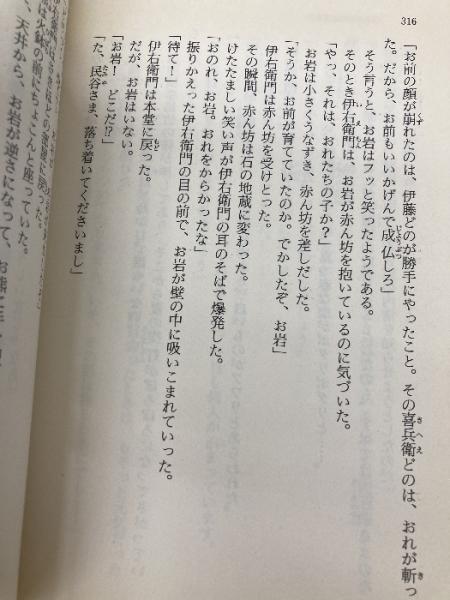 316
「お前の顔が崩れたのは、伊藤どのが勝手にやったこと。その喜兵衛どのは、おれが斬っ
た。だから、お前もいいかげんで成仏しろ」
そう言うと、お岩はフッと笑ったようである。
そのとき伊右衛門は、お岩が赤ん坊を抱いているのに気づいた。
「やっ、それは、おれたちの子か？」
お岩は小さくうなずき、赤ん坊を差しだした。
「そうか、お前が育てていたのか。でかしたぞ、お岩」
伊右衛門は赤ん坊を受けとった。
その瞬間、赤ん坊は石の地蔵に変わった。
けたたましい笑い声が伊右衛門の耳のそばで爆発した。
「おのれ、お岩。おれをからかったな」
振りかえった伊右衛門の目の前で、お岩が壁の中に吸いこまれていった。
「待て！」
伊右衛門は本堂に戻った。
だが、お岩はいない。
「お岩！　どこだ!?」
「た、民谷さま、落ち着いてくださいまし」
は火鉢の前にちょこんと座っていた。
、天井から、お岩が逆さになって、お